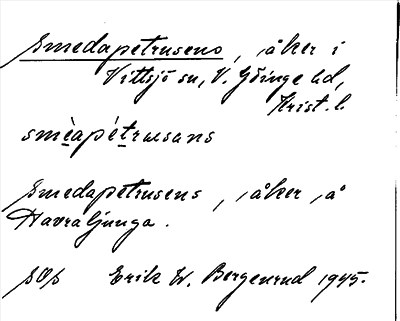 Smedapetrusens, åker i
Vittsjö sn, V. Göinge hd,
Krist. l.
smèapétrusans
Smedapetrusens, åker, å
Havraljunga.
SOp Erik W. Bergenrud 1945.